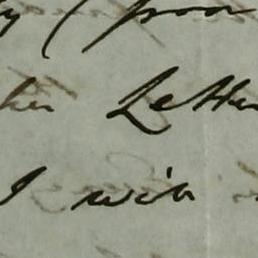 y (from
her Letter
I wish